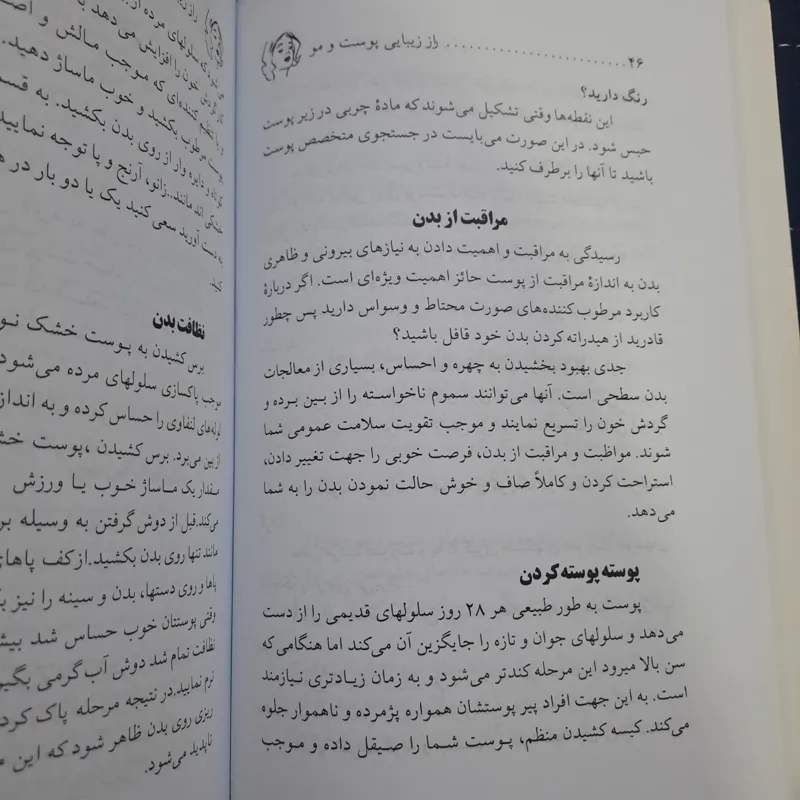 ۴۶ .......................... راز زیبایی پوست و مو
رنگ دارید؟
این نقطه‌ها وقتی تشکیل می‌شوند که مادهٔ چربی در زیر پوست
حبس شود. در این صورت می‌بایست در جستجوی متخصص پوست
باشید تا آنها را برطرف کنید.
مراقبت از بدن
رسیدگی به مراقبت و اهمیت دادن به نیازهای بیرونی و ظاهری
بدن به اندازهٔ مراقبت از پوست حائز اهمیت ویژه‌ای است. اگر دربارهٔ
کاربرد مرطوب کننده‌های صورت محتاط و وسواس دارید پس چطور
قادرید از هیدراته کردن بدن خود قافل باشید؟
جدی بهبود بخشیدن به چهره و احساس، بسیاری از معالجات
بدن سطحی است. آنها می‌توانند سموم ناخواسته را از بین برده و
گردش خون را تسریع نمایند و موجب تقویت سلامت عمومی شما
شوند. مواظبت و مراقبت از بدن، فرصت خوبی را جهت تغییر دادن،
استراحت کردن و کاملاً صاف و خوش حالت نمودن بدن را به شما
می‌دهد.
پوسته پوسته کردن
پوست به طور طبیعی هر ۲۸ روز سلولهای قدیمی را از دست
می‌دهد و سلولهای جوان و تازه را جایگزین آن می‌کند اما هنگامی که
سن بالا میرود این مرحله کندتر می‌شود و به زمان زیادتری نیازمند
است. به این جهت افراد پیر پوستشان همواره پژمرده و ناهموار جلوه
می‌کند. کیسه کشیدن منظم، پوست شما را صیقل داده و موجب
سلولهای مرده از
خون را افزایش می‌دهد
کننده‌ای که موجب مالش و
پوست مرطوب بکشید و خوب ماساژ دهید.
کوتاه و دایره وار از روی بدن بکشید. به
خشکی اند مانند..زانو، آرنج و پا توجه نمایید
به دست آورید سعی کنید یک یا دو بار در
کنید.
نظافت بدن
برس کشیدن به پوست خشک
موجب پاکسازی سلولهای مرده می‌شود
لوله‌های لنفاوی را حساس کرده و به
از بین می‌برد. برس کشیدن ،پوست
مقدار یک ماساژ خوب یا ورزش
می‌کند.قبل از دوش گرفتن به وسیله
مانند تنها روی بدن بکشید.ازکف پاهای
پاها و روی دستها، بدن و سینه را نیز
وقتی پوستتان خوب حساس شد
نظافت تمام شد دوش آب گرمی
نرم نمایید.در نتیجه مرحله پاک
ریزی روی بدن ظاهر شود که این
ناپدید می‌شود.